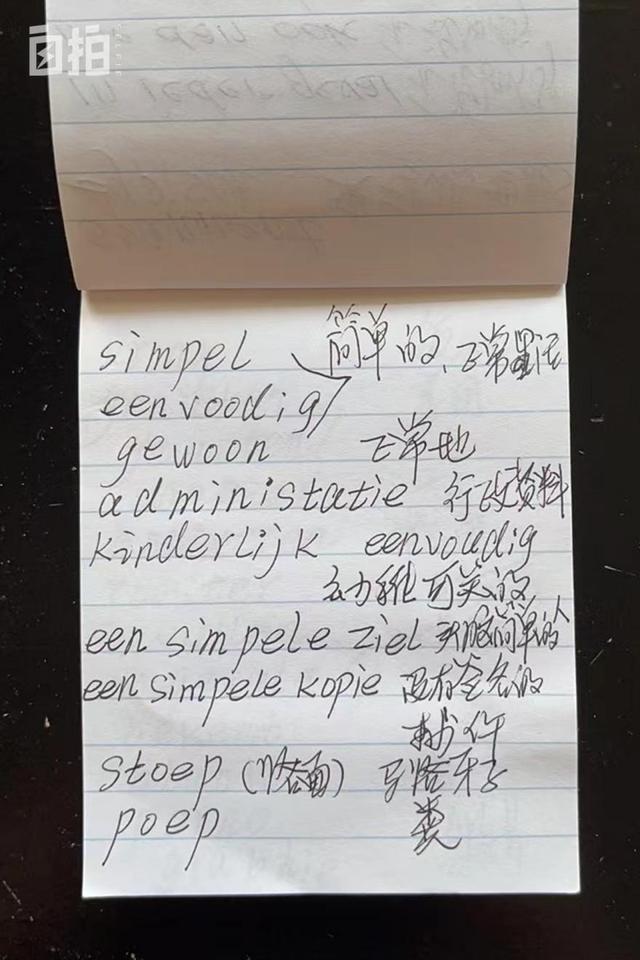 自拍
simpel 简单的、正常
eenvoodig
gewoon 正常地
administatie 行政资料
kinderlijk eenvoudig
幼稚可笑的
een simpele ziel 头脑简单的人
een simpele kopie 没有签名的
stoep (路面) 马路牙子
poep 粪